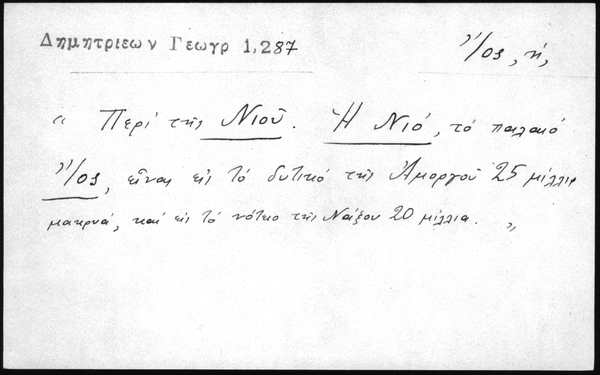 Δημητριεων Γεωγρ 1,287
Ἴος, ἡ,
" Περί τῆς Νιοῦ. Ἡ Νιό, τό παλαιό
Ἴος, εἶναι εἰς τό δυτικό τῆς Ἀμοργοῦ 25 μίλλια
μακρυά, καί εἰς τό νότιο τῆς Νάξου 20 μίλλια. "